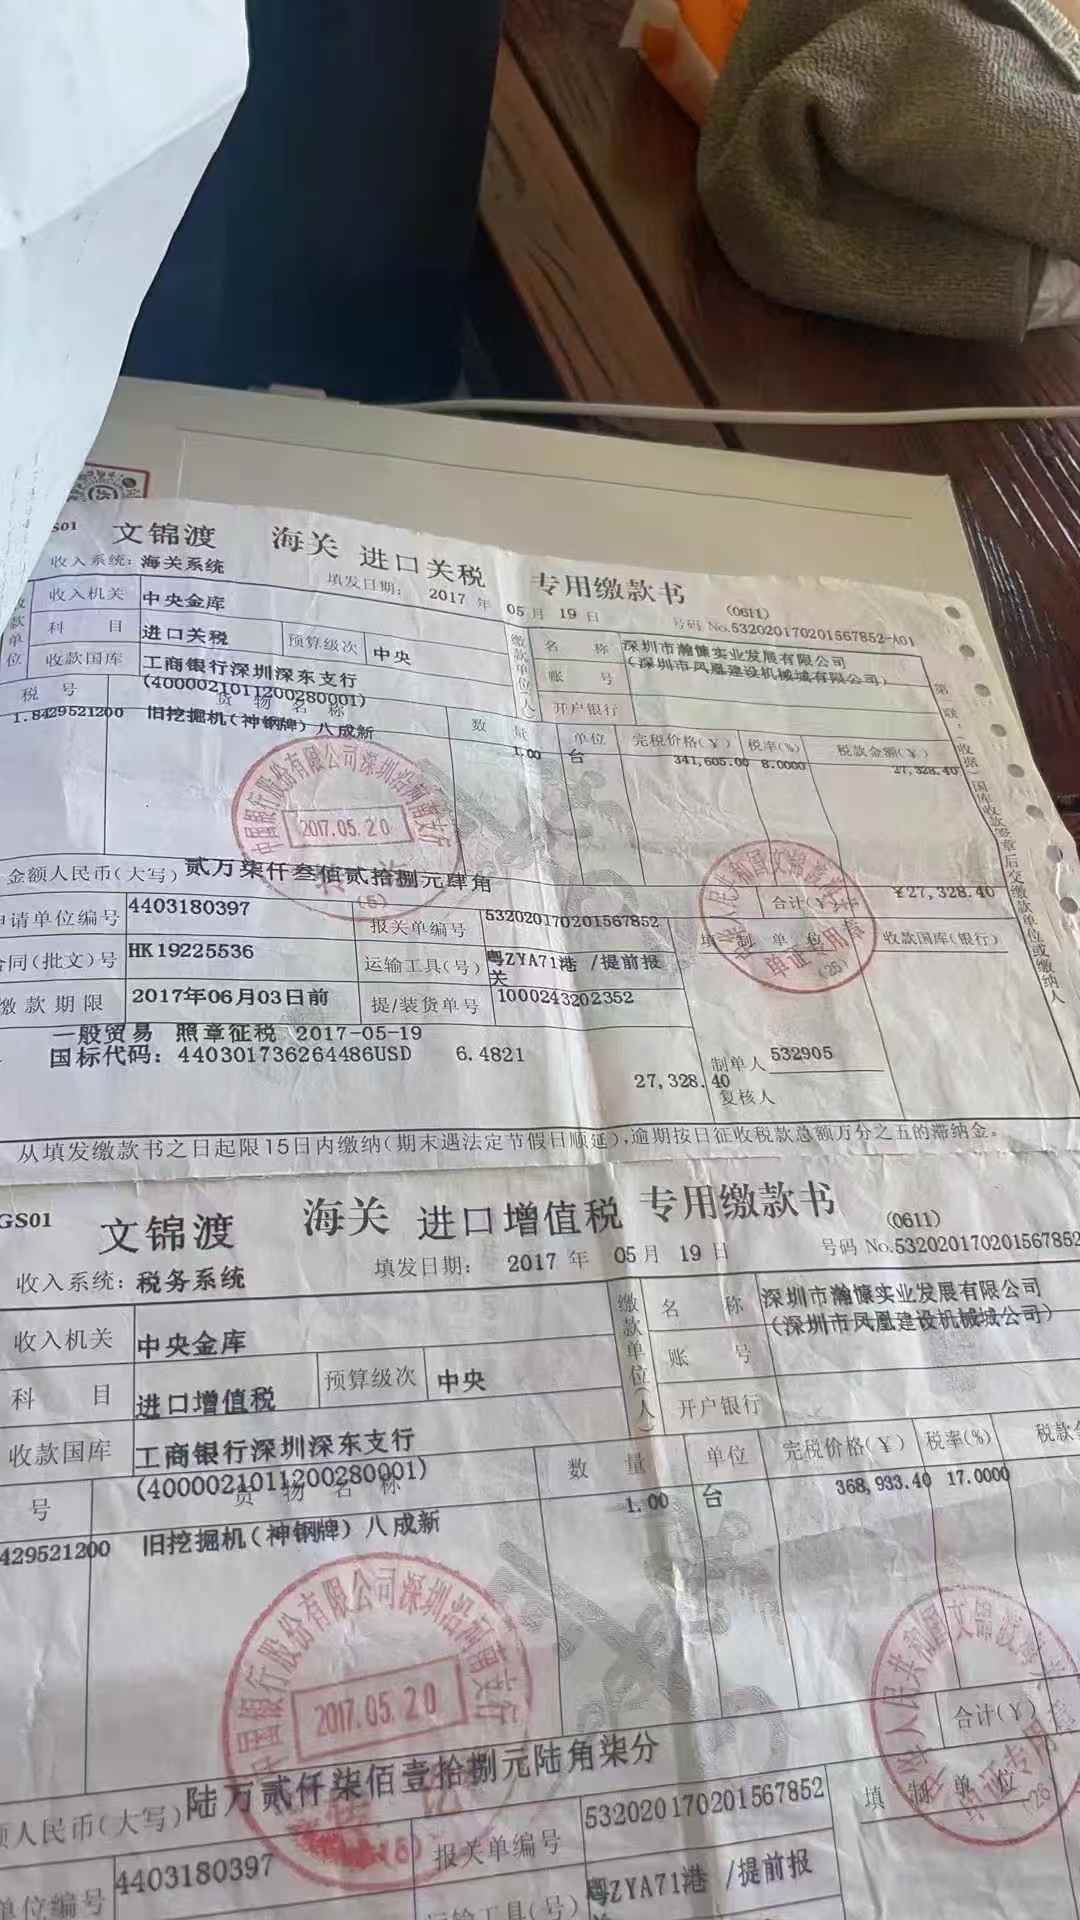 S01 文锦渡 海关 进口关税 专用缴款书
收入系统：海关系统 填发日期： 2017 年 05 月 19 日 (0611)
号码 No.532020170201567852-A01
收入机关 中央金库
科 目 进口关税 预算级次 中央
收款国库 工商银行深圳深东支行
(4000021011200280001)
缴款单位(人)
名 称 深圳市瀚慷实业发展有限公司
(深圳市凤凰建设机械城有限公司)
账 号
开户银行
税 号 货 物 名 称 数 量 单位 完税价格(¥) 税率(%) 税款金额(¥)
1.8429521200 旧挖掘机(神钢牌)八成新 1.00 台 341,605.00 8.0000 27,328.40
中国银行股份有限公司深圳沿河南支行
2017.05.20
(5)
金额人民币(大写) 贰万柒仟叁佰贰拾捌元肆角 合计(¥) ¥27,328.40
申请单位编号 4403180397 报关单编号 532020170201567852 填 制 单 位 收款国库(银行)
合同(批文)号 HK19225536 运输工具(号) 粤ZYA71港 /提前报
关
缴 款 期 限 2017年06月03日前 提/装货单号 1000243202352
一般贸易 照章征税 2017-05-19
国标代码：440301736264486USD 6.4821
27,328.40
制单人 532905
复核人
从填发缴款书之日起限15日内缴纳(期末遇法定节假日顺延),逾期按日征收税款总额万分之五的滞纳金。
GS01 文锦渡 海关 进口增值税 专用缴款书
收入系统：税务系统 填发日期： 2017 年 05 月 19 日 (0611)
号码 No.532020170201567852
收入机关 中央金库
科 目 进口增值税 预算级次 中央
收款国库 工商银行深圳深东支行
(4000021011200280001)
缴款单位(人)
名 称 深圳市瀚慷实业发展有限公司
(深圳市凤凰建设机械城公司)
账 号
开户银行
号 货 物 名 称 数 量 单位 完税价格(¥) 税率(%) 税款
429521200 旧挖掘机(神钢牌)八成新 1.00 台 368,933.40 17.0000
中国银行股份有限公司深圳沿河南支行
2017.05.20
人民币(大写) 陆万贰仟柒佰壹拾捌元陆角柒分 合计(¥)
单位编号 4403180397 报关单编号 532020170201567852 填 制 单 位
运输工具(号) 粤ZYA71港 /提前报